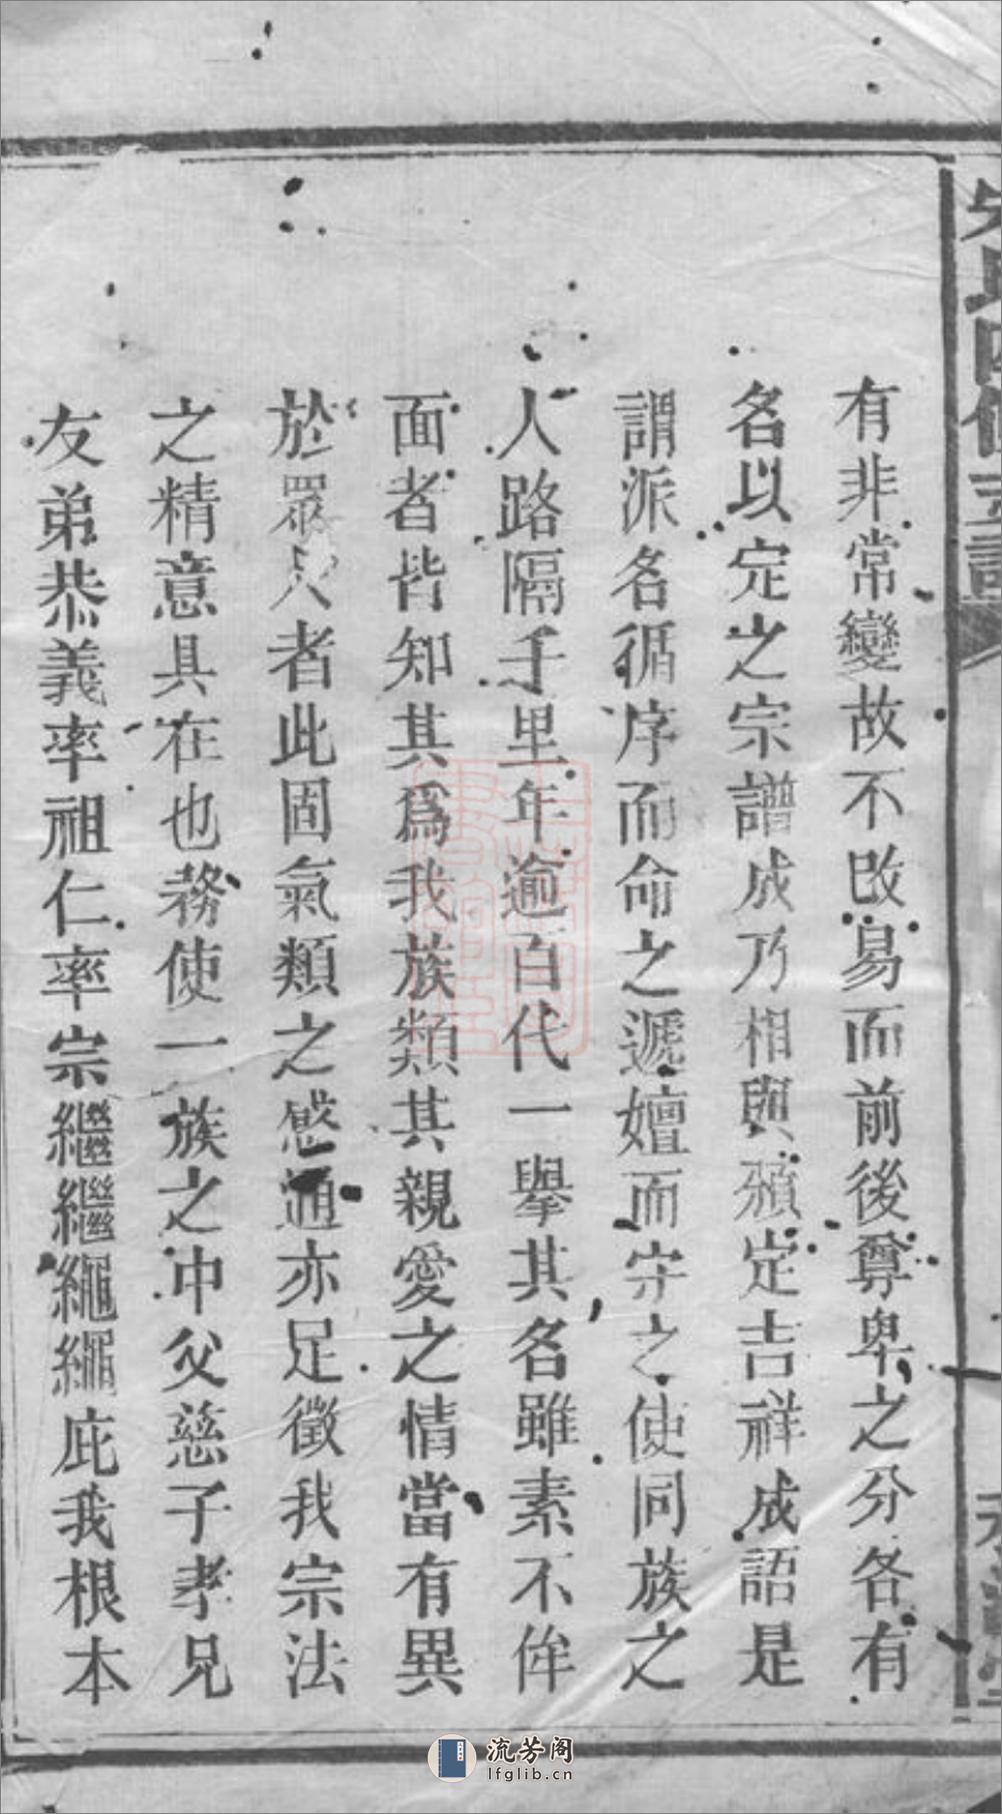 有非常變故不改易而前後尊卑之分各有
名以定之宗譜成乃相與頒定吉祥成語是
謂派名循序而命之遞嬗而守之使同族之
人路隔千里年逾百代一舉其名雖素不侔
面者皆知其為我族類其親愛之情當有異
於眾人者此固氣類之感通亦足徵我宗法
之精意具在也務使一族之中父慈子孝兄
友弟恭義率祖仁率宗繼繼繩繩庇我根本
流芳阁
lfglib.cn